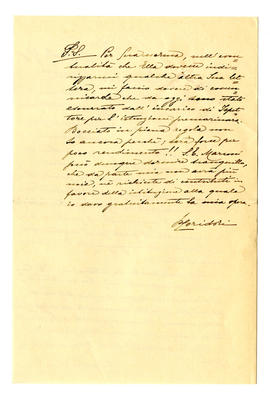 P.S. — Per Sua norma, nell'even=
tualità che Ella dovesse indi=
rizzarmi qualche altra Sua let=
tera, mi faccio dovere di comu=
nicarle che da oggi sono stato
esonerato dall'incarico di Ispet=
tore per l'istruzione premarinara.
Bocciato in piena regola non
so ancora perchè; sarà forse per
poco rendimento!! S.E. Marconi
può dunque dormire tranquillo
che da parte mia non avrà più
noie, nè richieste di contributi in
favore della istituzione alla quale
io davo gratuitamente la mia opera.